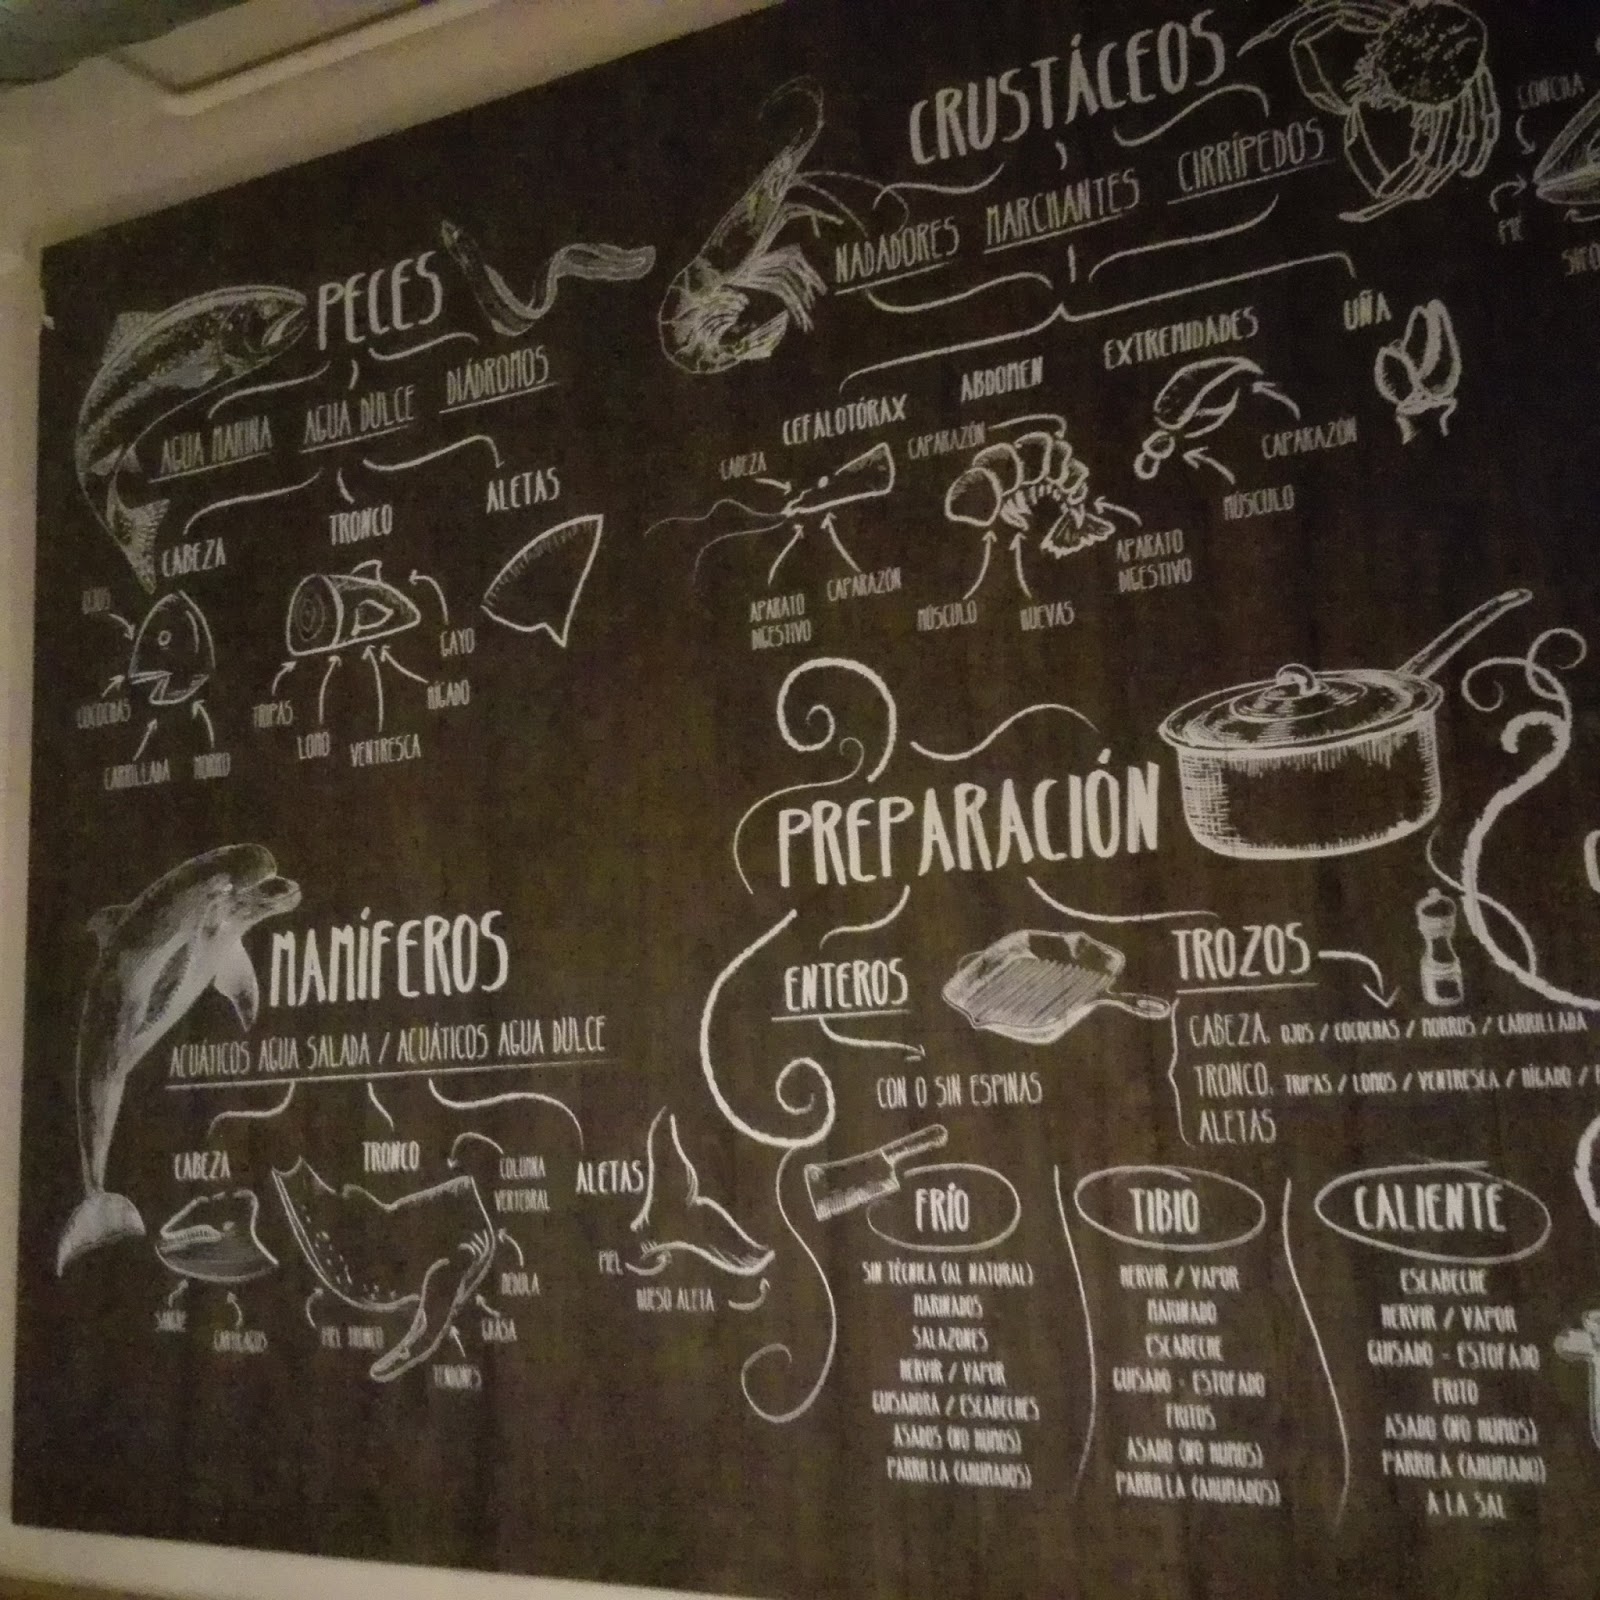 PECES
AGUA MARINA AGUA DULCE DIÁDROMOS
CABEZA
TRONCO
ALETAS
OJOS
COCOCHAS
CARRILLADA
MORRO
TRIPAS
LOMO
VENTRESCA
HÍGADO
GAYO
CRUSTÁCEOS
NADADORES MARCHANTES CIRRÍPEDOS
CEFALOTÓRAX
ABDOMEN
EXTREMIDADES
UÑA
CABEZA
APARATO
DIGESTIVO
CAPARAZÓN
CAPARAZÓN
MÚSCULO
HUEVAS
APARATO
DIGESTIVO
CAPARAZÓN
MÚSCULO
CONCHA
PIE
MAMÍFEROS
ACUÁTICOS AGUA SALADA / ACUÁTICOS AGUA DULCE
CABEZA
TRONCO
ALETAS
SANGRE
CARTÍLAGOS
COLUMNA
VERTEBRAL
MÉDULA
GRASA
TENDONES
PIEL TRONCO
PIEL
HUESO ALETA
PREPARACIÓN
ENTEROS
CON O SIN ESPINAS
TROZOS
CABEZA. OJOS / COCOCHAS / MORROS / CARRILLADA
TRONCO. TRIPAS / LOMOS / VENTRESCA / HÍGADO /
ALETAS
FRÍO
SIN TÉCNICA (AL NATURAL)
MARINADOS
SALAZONES
HERVIR / VAPOR
GUISADORA / ESCABECHES
ASADOS (NO HUMOS)
PARRILLA (AHUMADOS)
TIBIO
HERVIR / VAPOR
MARINADO
ESCABECHE
GUISADO - ESTOFADO
FRITOS
ASADO (NO HUMOS)
PARRILLA (AHUMADOS)
CALIENTE
ESCABECHE
HERVIR / VAPOR
GUISADO - ESTOFADO
FRITO
ASADO (NO HUMOS)
PARRILA (AHUMADO)
A LA SAL